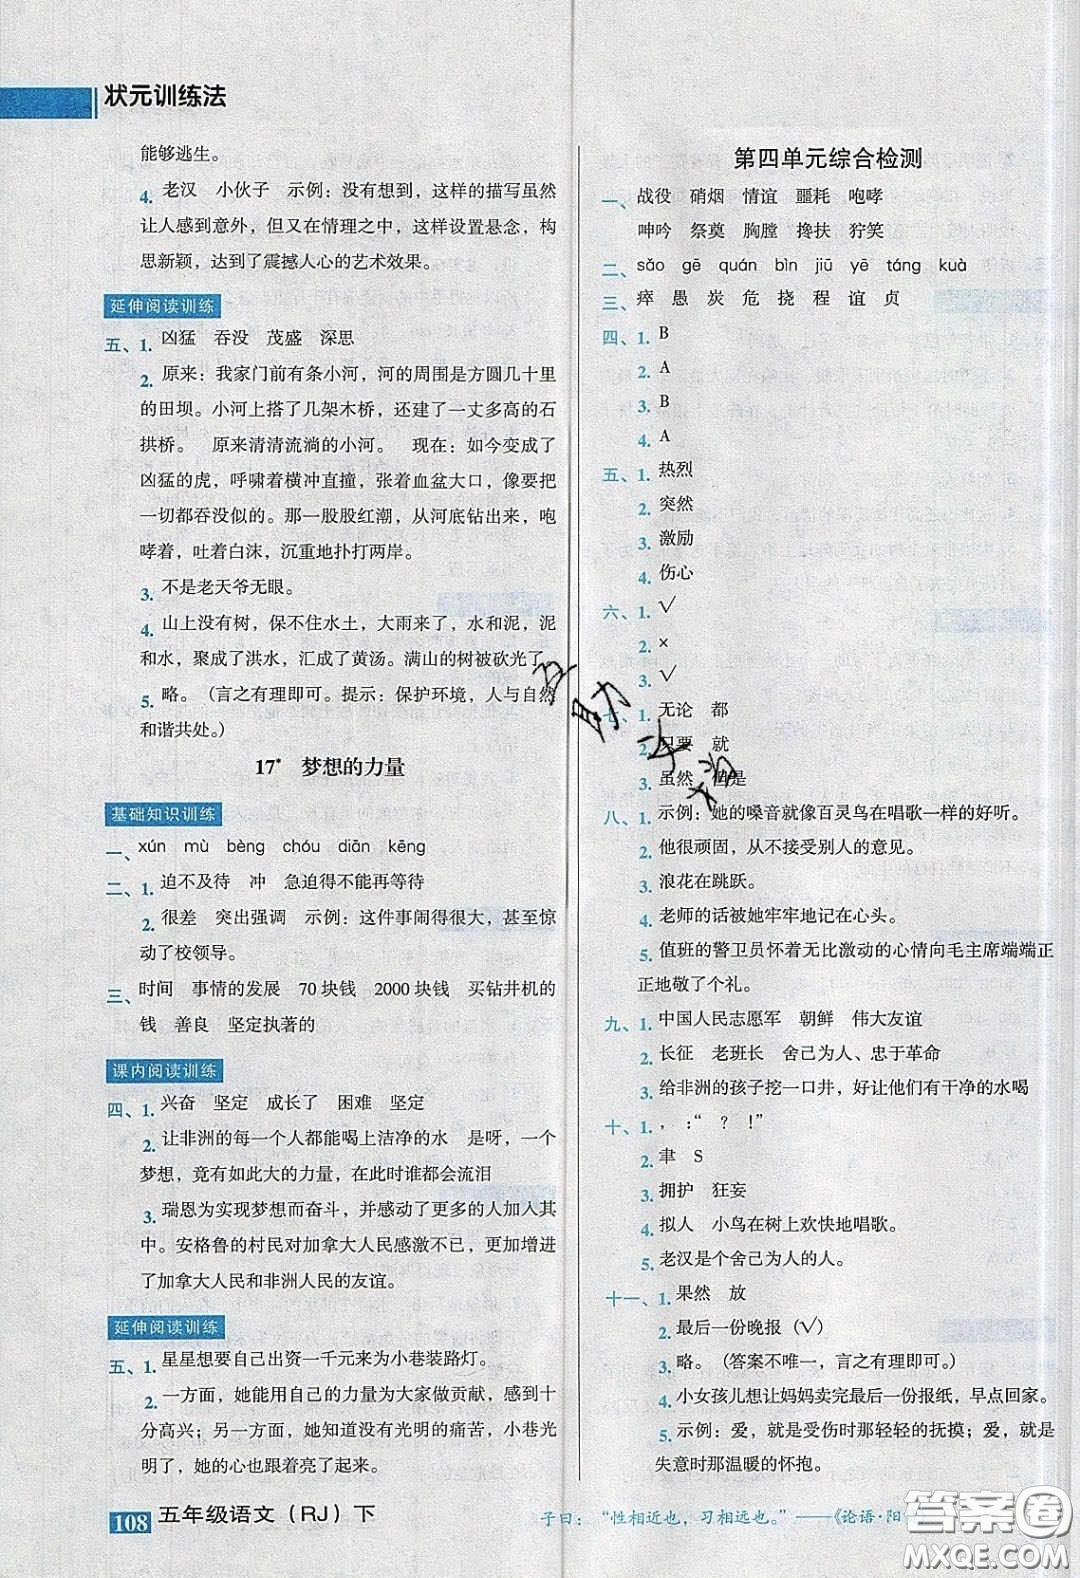 状元训练法
能够逃生。
4. 老汉 小伙子 示例：没有想到，这样的描写虽然
让人感到意外，但又在情理之中，这样设置悬念，构
思新颖，达到了震撼人心的艺术效果。
延伸阅读训练
五、1. 凶猛 吞没 茂盛 深思
2. 原来：我家门前有条小河，河的周围是方圆几十里
的田坝。小河上搭了几架木桥，还建了一丈多高的石
拱桥。 原来清清流淌的小河。 现在：如今变成了
凶猛的虎，呼啸着横冲直撞，张着血盆大口，像要把
一切都吞没似的。那一股股红潮，从河底钻出来，咆
哮着，吐着白沫，沉重地扑打两岸。
3. 不是老天爷无眼。
4. 山上没有树，保不住水土，大雨来了，水和泥，泥
和水，聚成了洪水，汇成了黄汤。满山的树被砍光了。
5. 略。（言之有理即可。提示：保护环境，人与自然
和谐共处。）
17* 梦想的力量
基础知识训练
一、xún mù bèng chóu diān kēng
二、1. 迫不及待 冲 急迫得不能再等待
2. 很差 突出强调 示例：这件事闹得很大，甚至惊
动了校领导。
三、时间 事情的发展 70 块钱 2000 块钱 买钻井机的
钱 善良 坚定执著的
课内阅读训练
四、1. 兴奋 坚定 成长了 困难 坚定
2. 让非洲的每一个人都能喝上洁净的水 是呀，一个
梦想，竟有如此大的力量，在此时谁都会流泪
3. 瑞恩为实现梦想而奋斗，并感动了更多的人加入其
中。安格鲁的村民对加拿大人民感激不已，更增进了
加拿大人民和非洲人民的友谊。
延伸阅读训练
五、1. 星星想要自己出资一千元来为小巷装路灯。
2. 一方面，她能用自己的力量为大家做贡献，感到十
分高兴；另一方面，她知道没有光明的痛苦，小巷光
明了，她的心也跟着亮了起来。
108 五年级语文（RJ）下
第四单元综合检测
一、战役 硝烟 情谊 噩耗 咆哮
呻吟 祭奠 胸膛 搀扶 狞笑
二、sǎo gē quán bìn jiū yē táng kuà
三、瘁 愚 炭 危 挠 程 谊 贞
四、1. B
2. A
3. B
4. A
五、1. 热烈
2. 突然
3. 激励
4. 伤心
六、1. √
2. ×
3. √
七、1. 无论 都
2. 只要 就
3. 虽然 但是
八、1. 示例：她的嗓音就像百灵鸟在唱歌一样的好听。
2. 他很顽固，从不接受别人的意见。
3. 浪花在跳跃。
4. 老师的话被她牢牢地记在心头。
5. 值班的警卫员怀着无比激动的心情向毛主席端端正
正地敬了个礼。
九、1. 中国人民志愿军 朝鲜 伟大友谊
2. 长征 老班长 舍己为人、忠于革命
3. 给非洲的孩子挖一口井，好让他们有干净的水喝
十、1. ，：“ ？ ！”
2. 聿 S
3. 拥护 狂妄
4. 拟人 小鸟在树上欢快地唱歌。
5. 老汉是个舍己为人的人。
十一、1. 果然 放
2. 最后一份晚报（√）
3. 略。（答案不唯一，言之有理即可。）
4. 小女孩儿想让妈妈卖完最后一份报纸，早点回家。
5. 示例：爱，就是成功时那轻轻的抚摸；爱，就是
失意时那温暖的怀抱。
子曰：“性相近也，习相远也。”——《论语·阳
互助文档
答案圈
MXQE.COM